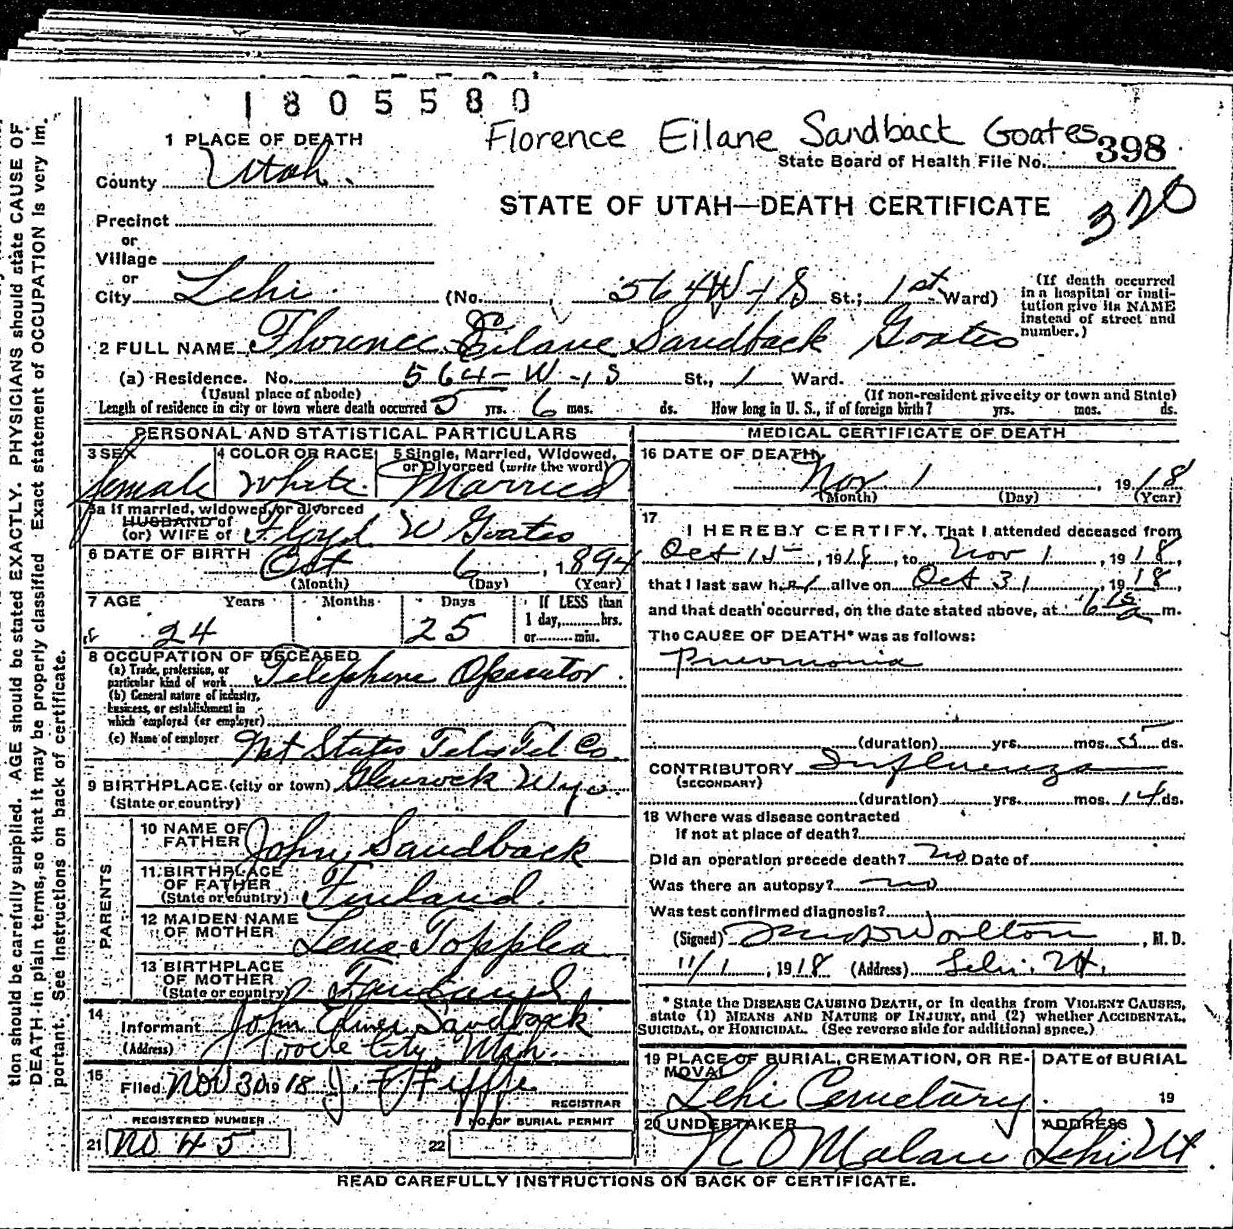 1805580
Florence Eilane Sandback Goates
1 PLACE OF DEATH
State Board of Health File No. 398
County Utah.
320
STATE OF UTAH—DEATH CERTIFICATE
Precinct
or
Village
or
City Lehi. (No. , 564 W-1S St.; 1st Ward) (If death occurred in a hospital or institution give its NAME instead of street and number.)
2 FULL NAME Florence Eilane Sandback Goates
(a) Residence. No. 564-W-1S St., 1 Ward.
(Usual place of abode) (If non-resident give city or town and State)
Length of residence in city or town where death occurred 5 yrs. 6 mos. ds. How long in U. S., if of foreign birth? yrs. mos. ds.
PERSONAL AND STATISTICAL PARTICULARS
3 SEX female
4 COLOR OR RACE White
5 Single, Married, Widowed, or Divorced (write the word) Married
5a If married, widowed, or divorced
HUSBAND of
(or) WIFE of Floyd W Goates
6 DATE OF BIRTH Oct 6, 1894
(Month) (Day) (Year)
7 AGE Years Months Days If LESS than
24 25 1 day, hrs.
or min.
8 OCCUPATION OF DECEASED
(a) Trade, profession, or
particular kind of work Telephone Operator.
(b) General nature of industry,
business, or establishment in
which employed (or employer)
(c) Name of employer Mt States Tel & Tel Co.
9 BIRTHPLACE (city or town) Glenrock Wyo.
(State or country)
PARENTS
10 NAME OF FATHER John Sandback
11 BIRTHPLACE OF FATHER (State or country) Finland.
12 MAIDEN NAME OF MOTHER Lena
13 BIRTHPLACE OF MOTHER (State or country)
14
Informant John Elmer Sandback
(Address) Tooele City, Utah.
15
Filed Nov 30 1918 J. F Fiffe
REGISTRAR
REGISTERED NUMBER
NO. OF BURIAL PERMIT
21 No 45 22
MEDICAL CERTIFICATE OF DEATH
16 DATE OF DEATH
Nov 1, 1918
(Month) (Day) (Year)
17
I HEREBY CERTIFY, That I attended deceased from
Oct 15, 1918, to Nov 1, 1918,
that I last saw her alive on Oct 31, 1918,
and that death occurred, on the date stated above, at 6 15 a m.
The CAUSE OF DEATH* was as follows:
Pneumonia
(duration) yrs. mos. 5 ds.
CONTRIBUTORY Influenza
(SECONDARY)
(duration) yrs. mos. 14 ds.
18 Where was disease contracted
if not at place of death?
Did an operation precede death? no Date of
Was there an autopsy? no
Was test confirmed diagnosis?
(Signed) Worlton, M. D.
11/1, 1918 (Address) Lehi. Ut.
* State the DISEASE CAUSING DEATH, or in deaths from VIOLENT CAUSES,
state (1) MEANS AND NATURE OF INJURY, and (2) whether ACCIDENTAL,
SUICIDAL, or HOMICIDAL. (See reverse side for additional space.)
19 PLACE OF BURIAL, CREMATION, OR REMOVAL
Lehi Cemetary
DATE of BURIAL
19
20 UNDERTAKER
N O Malan
ADDRESS
Lehi Ut
READ CAREFULLY INSTRUCTIONS ON BACK OF CERTIFICATE.
tion should be carefully supplied. AGE should be stated EXACTLY. PHYSICIANS should state CAUSE OF
DEATH in plain terms, so that it may be properly classified. Exact statement of OCCUPATION is very im-
portant. See instructions on back of certificate.